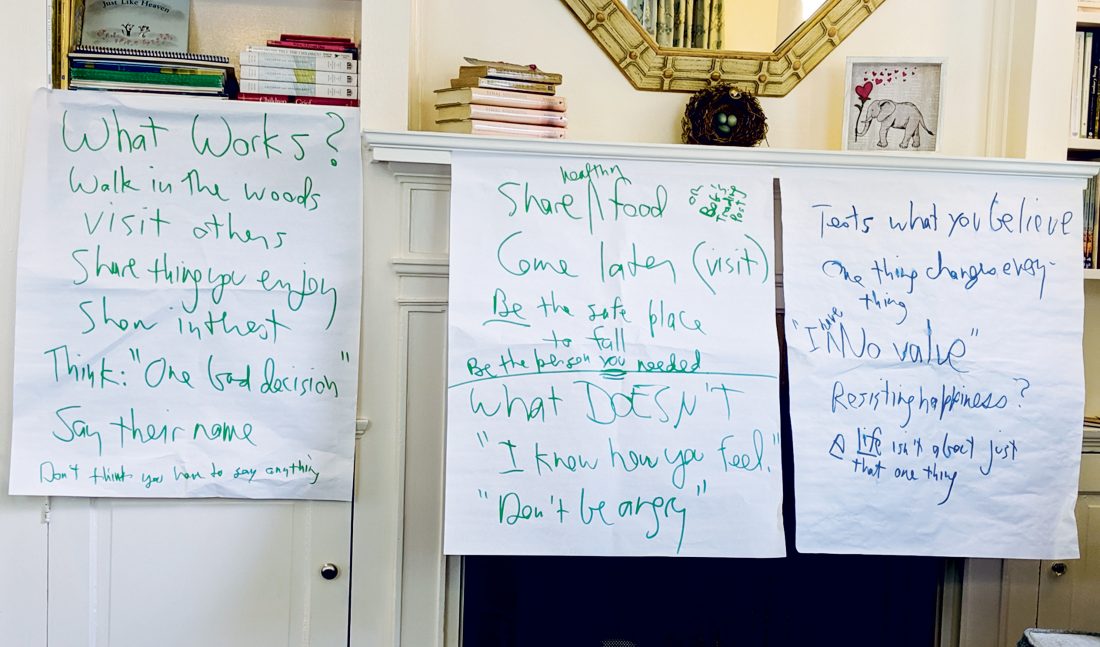 Just Like Heaven
What Works?
Walk in the woods
visit others
Share thing you enjoy
Show inthest
Think: "One bad decision"
Say their name
Don't think you have to say anything
healthy
Share /\ food
on
Come later (visit)
Be the safe place
to fall
Be the person you needed
What DOESN'T
"I know how you feel."
"Don't be angry"
Tests what you believe
One thing changes every-
thing
have
"I /\ No value"
Resisting happiness?
Life isn't about just
that one thing